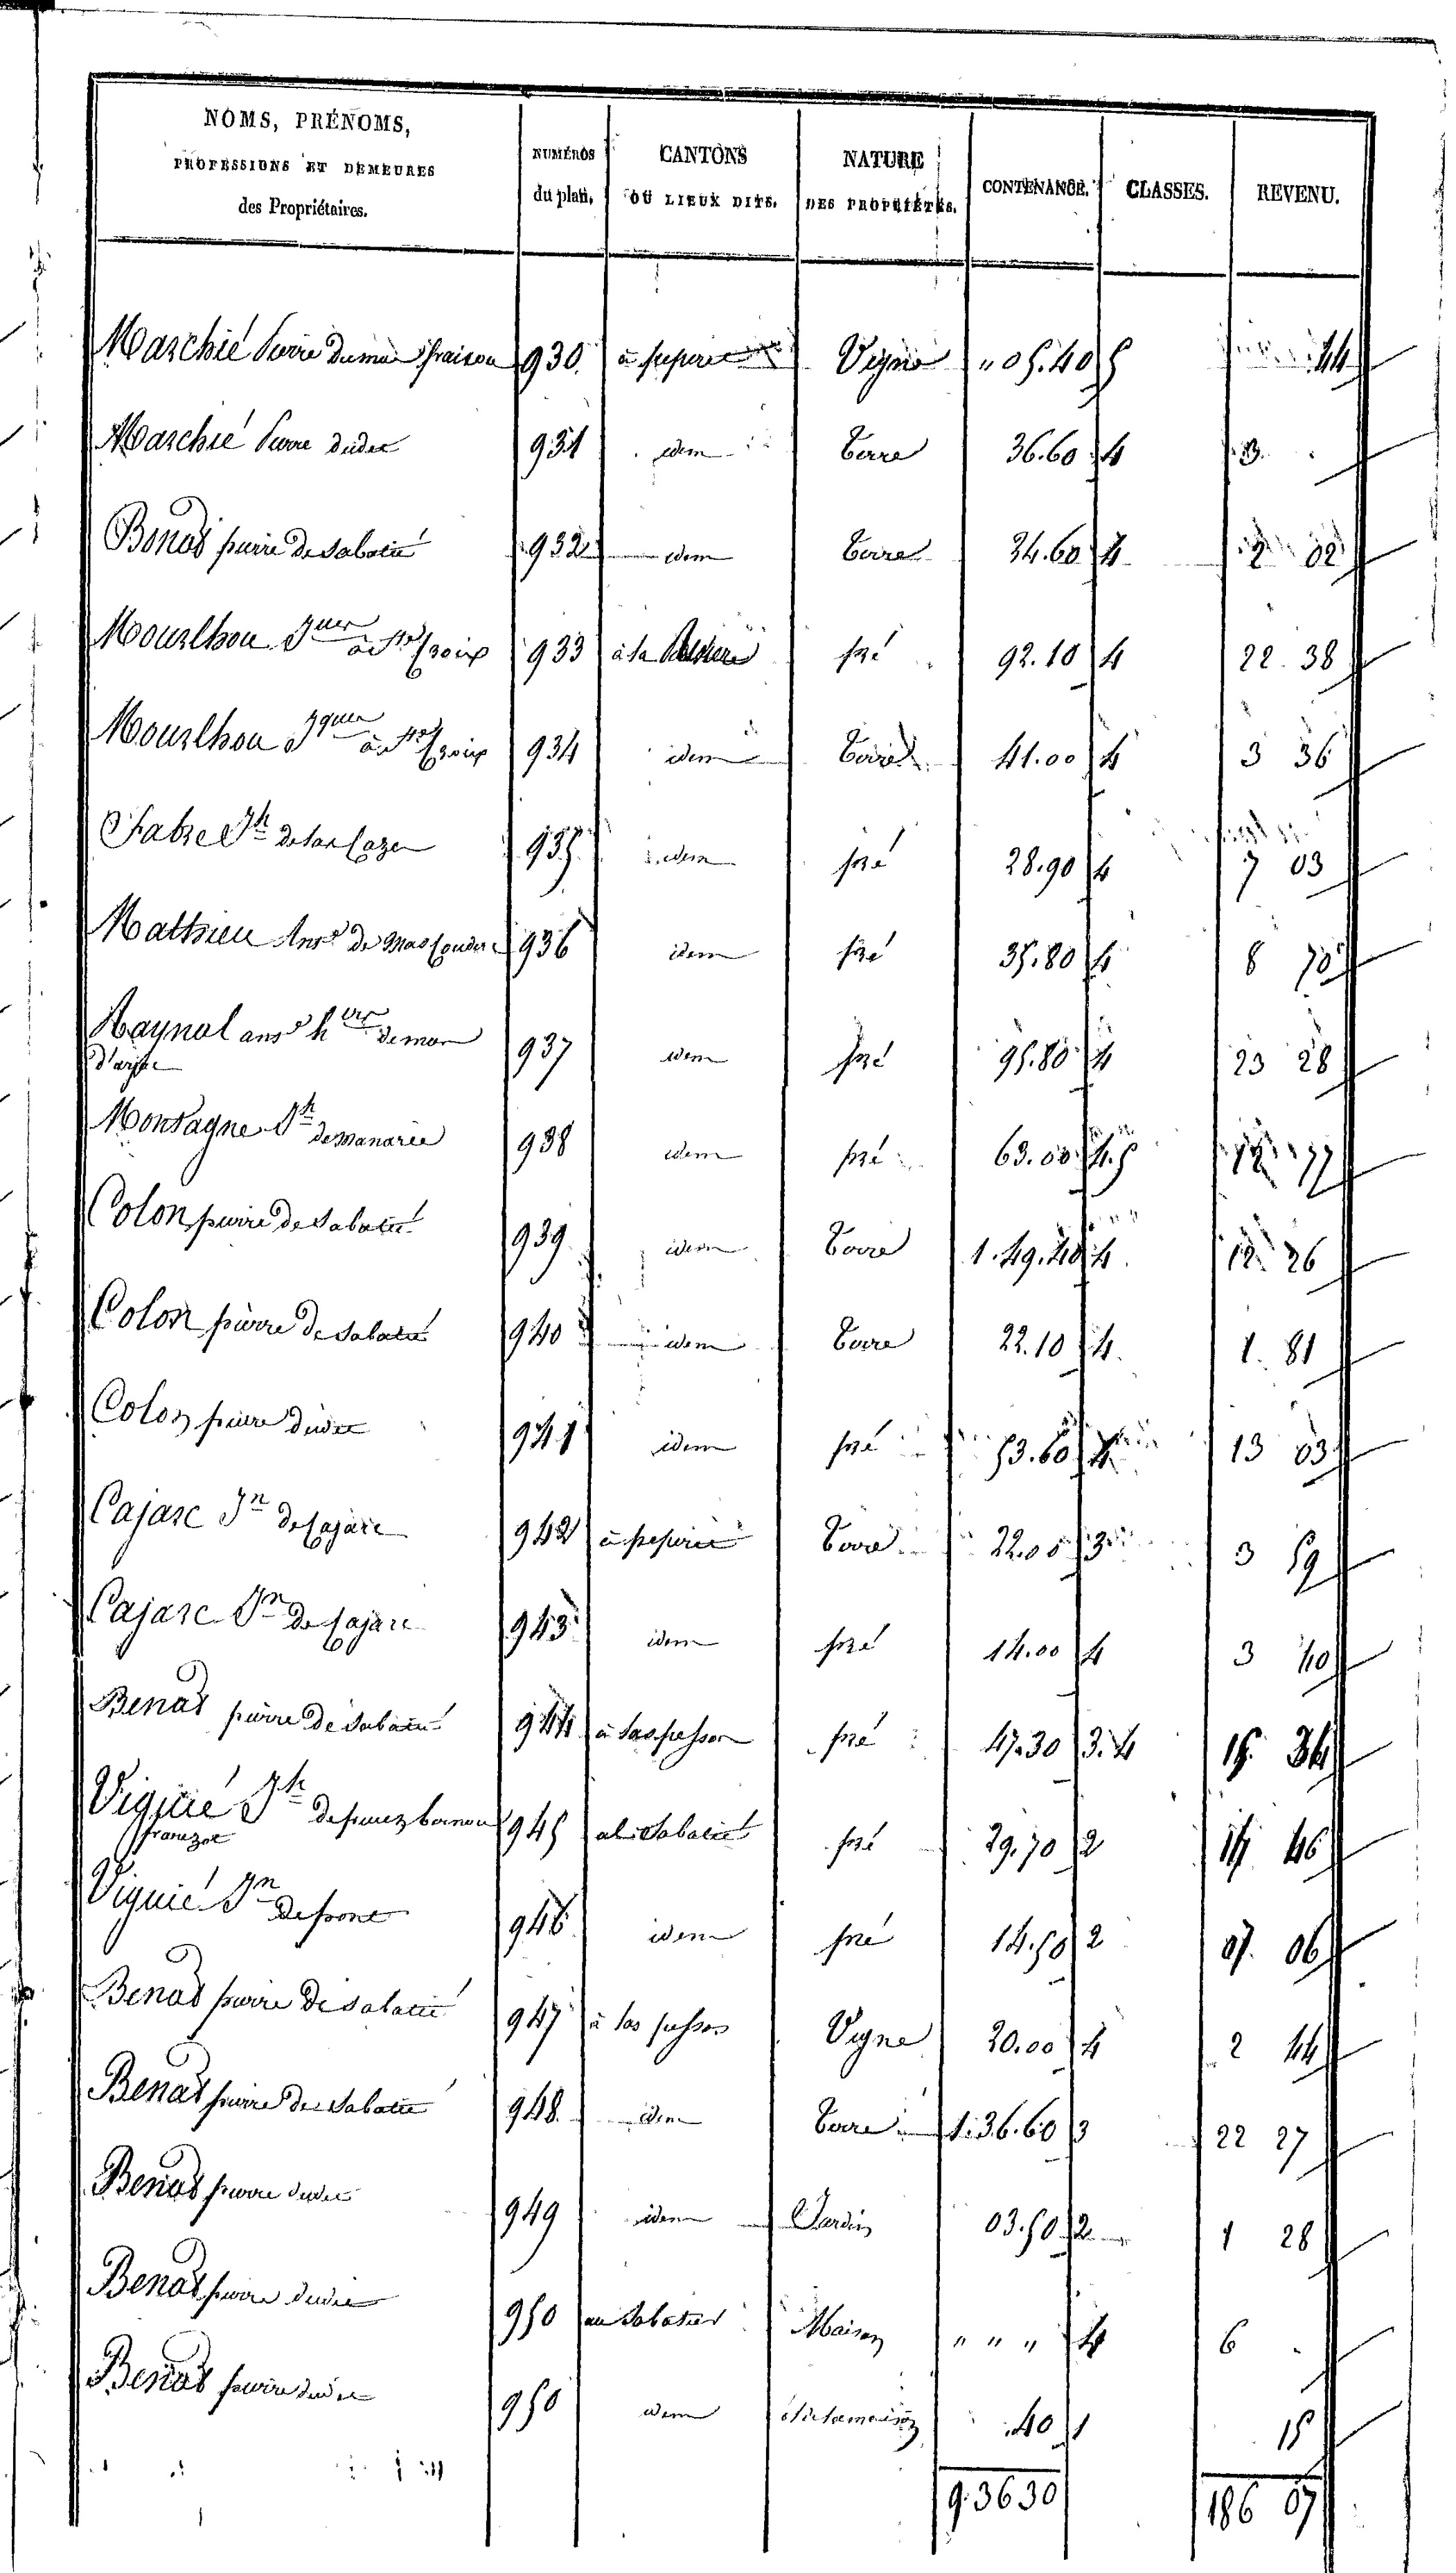 NOMS, PRÉNOMS, PROFESSIONS ET DEMEURES des Propriétaires. NUMÉROS du plan. CANTONS OU LIEUX DITS. NATURE DES PROPRIÉTÉS. CONTENANCE. CLASSES. REVENU.
Marchié Pierre 930 Vigne " 05.40 5 44
Marchié Pierre dudit 931 idem Terre 36.60 4 3.
Benat pierre de Sabatié 932 idem Terre 24.60 4 2 02
Mourlhou à Ste Croix 933 à la pré 92.10 4 22. 38
Mourlhou à Ste Croix 934 idem Terre 41.00 4 3 36
Fabre Jh 935 idem pré 28.90 4 7 03
Mathieu Ante de 936 idem pré 35.80 4 8 70
Raynal 937 idem pré 95.80 4 23 28
Montagne Jh de 938 idem pré 63.00 4.5
Colon pierre de Sabatié 939 idem Terre 1.49.40 4 12 26
Colon pierre de Sabatié 940 idem Terre 22.10 4. 1. 81
Colon pierre dudit 941 idem pré 53.60 4 13 03
Cajarc Jn de Cajarc 942 Terre 22.00 3 3 59
Cajarc Jn de Cajarc 943 idem pré 14.00 4 3 40
Benat pierre de Sabatié 944 pré 47.30 3.4 15. 34
Viguié Jh 945 pré 29.70 2 14 46
Viguié Jn 946 idem pré 14.50 2 07. 06
Benat pierre de Sabatié 947 à las Vigne 20.00 4 2 44
Benat pierre de Sabatié 948 idem Terre 1.36.60 3 22 27
Benat pierre dudit 949 idem Jardin 03.50 2 1 28
Benat pierre dudit 950 au Sabatier Maison " " " 4 6
Benat pierre dudit 950 idem .40 1 15
9.3630 186 07